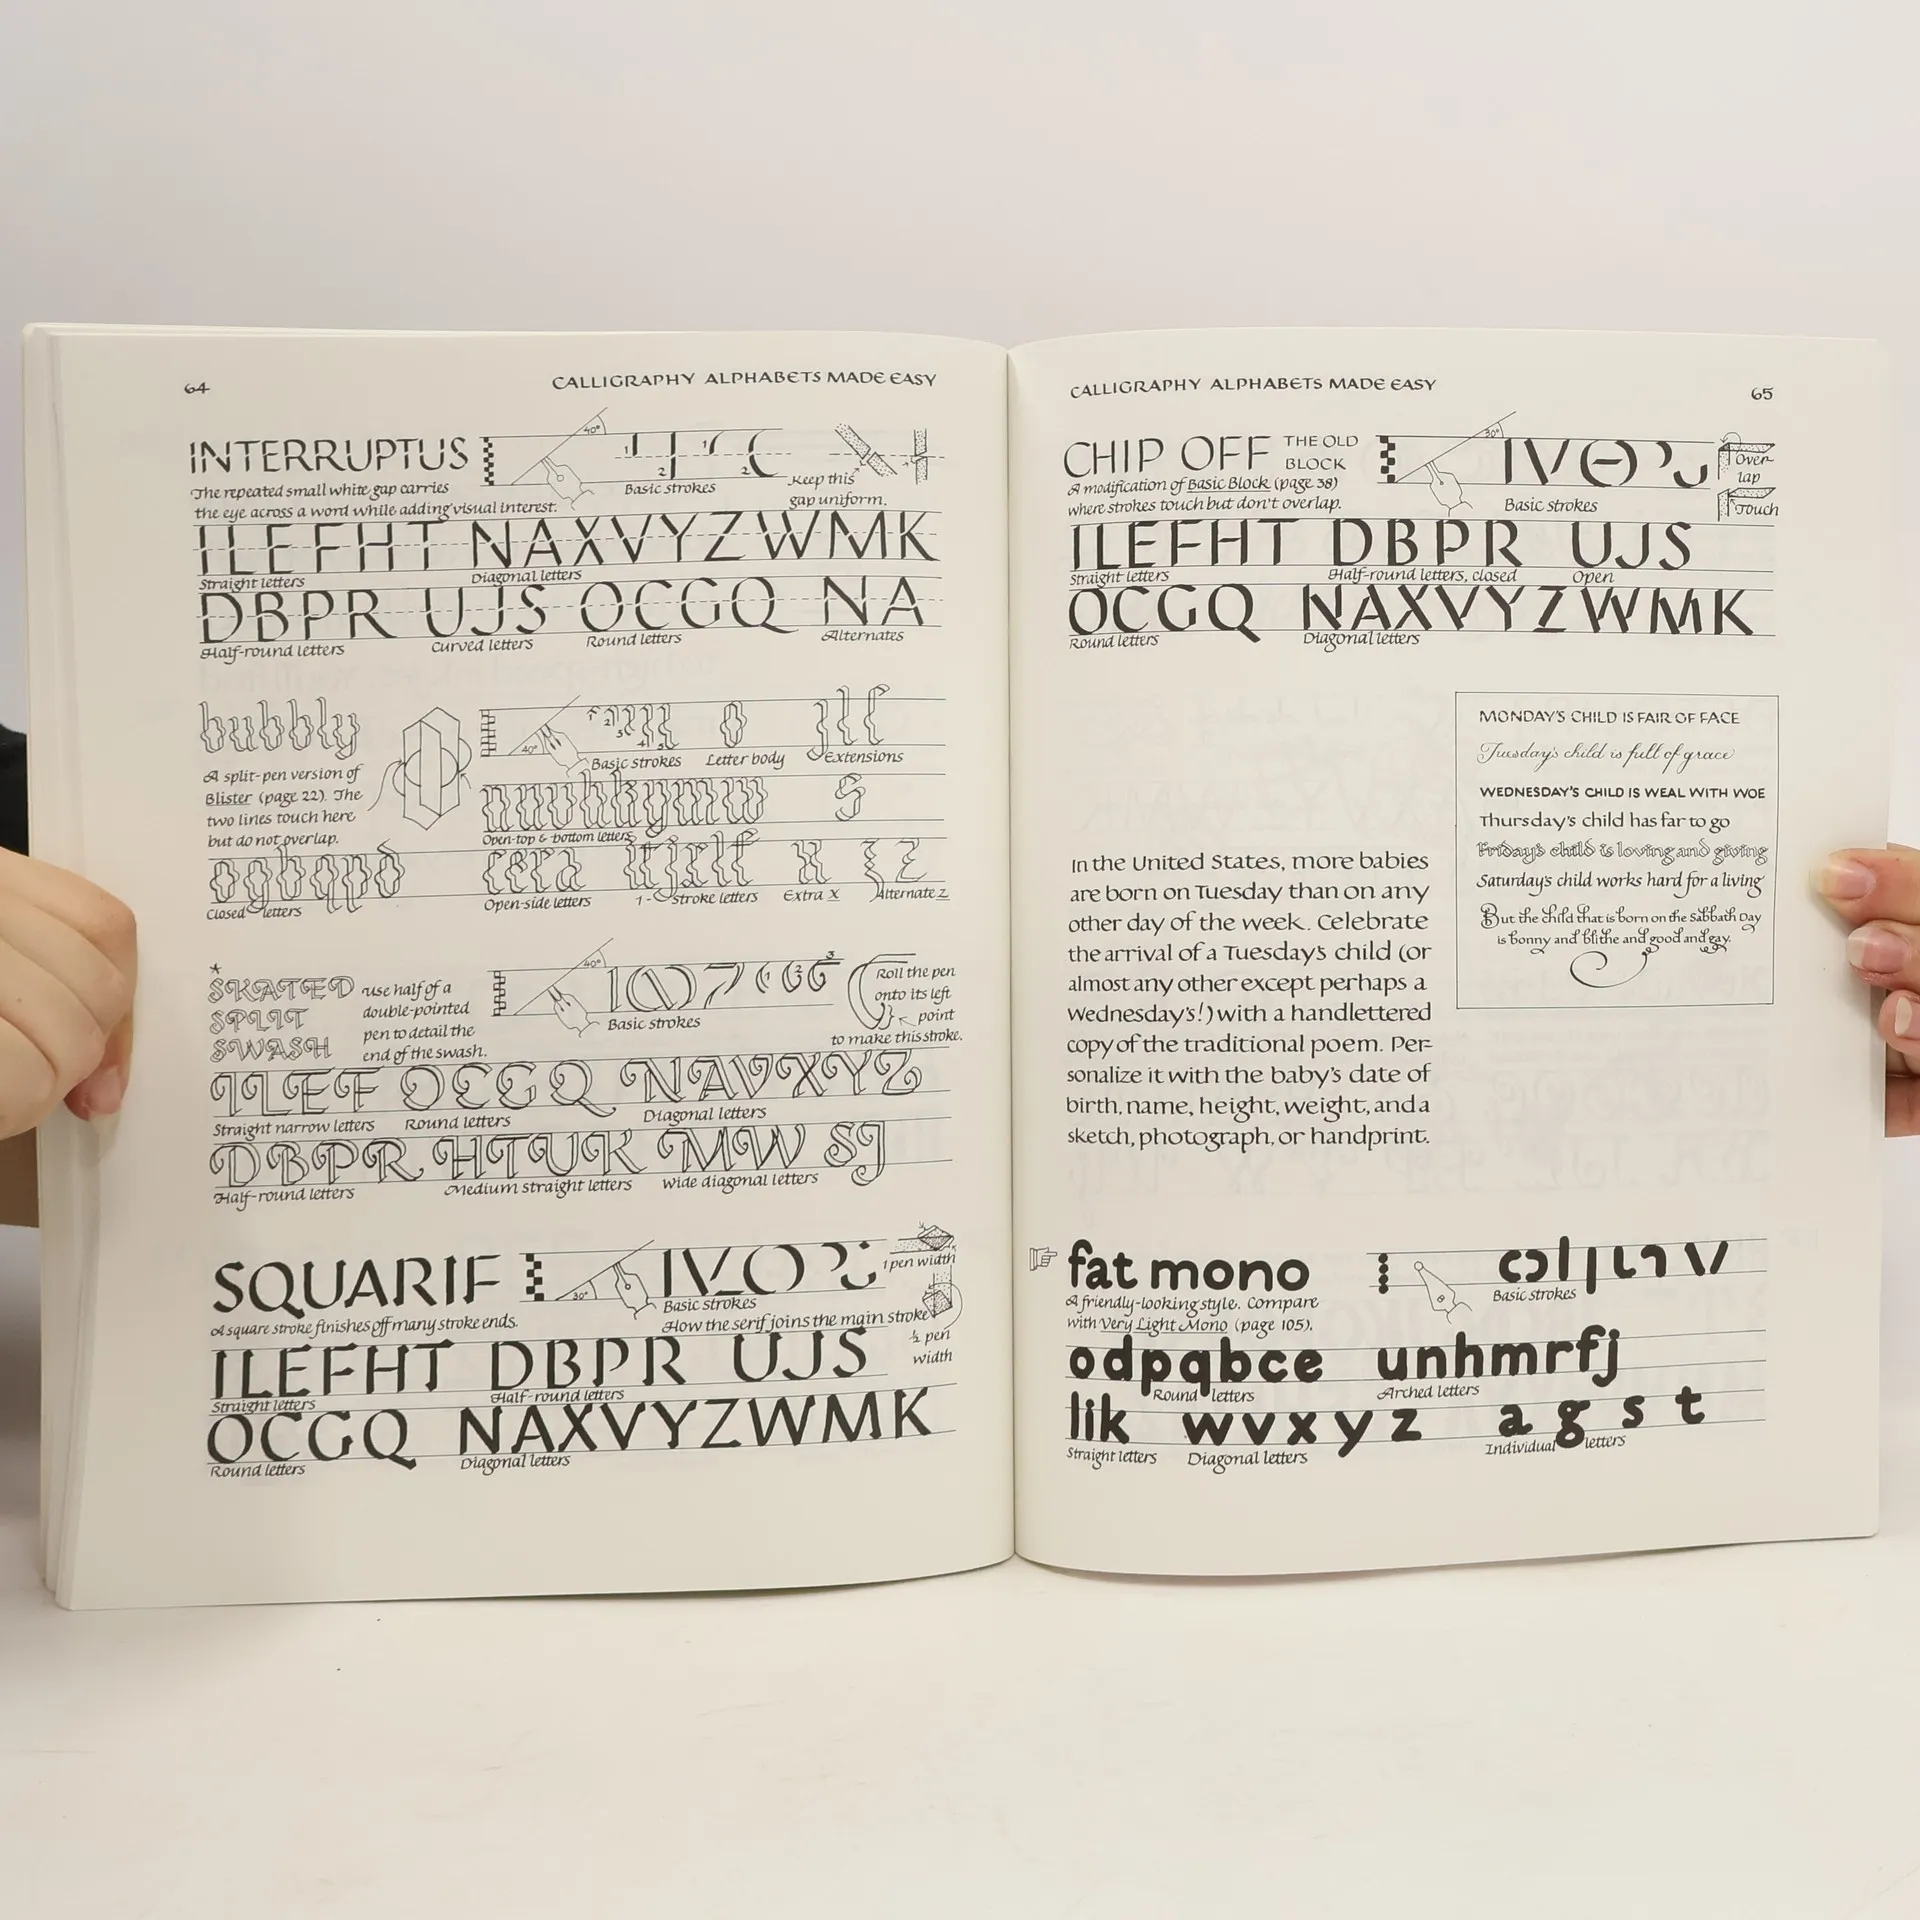 64
CALLIGRAPHY ALPHABETS MADE EASY
INTERRUPTUS
The repeated small white gap carries
the eye across a word while adding visual interest.
40°
1
2
1
2
Basic strokes
Keep this
gap uniform.
ILEFHT NAXVYZWMK
Straight letters
Diagonal letters
DBPR UJS OCGQ NA
Half-round letters
Curved letters
Round letters
Alternates
bubbly
A split-pen version of
Blister (page 22). The
two lines touch here
but do not overlap.
40°
Basic strokes
Letter body
Extensions
nuvhkymw s
Open-top & bottom letters
ogbqpd cera itjrlf x z z
Closed letters
Open-side letters
1-Stroke letters
Extra x
Alternate z
*
SKATED
SPLIT
SWASH
use half of a
double-pointed
pen to detail the
end of the swash.
40°
Basic strokes
Roll the pen
onto its left
point
to make this stroke.
ILEF OCGQ NAVXYZ
Straight narrow letters
Round letters
Diagonal letters
DBPR HTUK MW SJ
Half-round letters
Medium straight letters
Wide diagonal letters
SQUARIF
A square stroke finishes off many stroke ends.
30°
Basic strokes
How the serif joins the main stroke
1 pen width
½ pen
width
ILEFHT DBPR UJS
Straight letters
Half-round letters
OCGQ NAXVYZWMK
Round letters
Diagonal letters
CALLIGRAPHY ALPHABETS MADE EASY
65
CHIP OFF THE OLD
BLOCK
A modification of Basic Block (page 38)
where strokes touch but don't overlap.
30°
Basic strokes
Over-
lap
Touch
ILEFHT DBPR UJS
Straight letters
Half-round letters, closed
Open
OCGQ NAXVYZWMK
Round letters
Diagonal letters
MONDAY'S CHILD IS FAIR OF FACE
Tuesday's child is full of grace
WEDNESDAY'S CHILD IS WEAL WITH WOE
Thursday's child has far to go
Friday's child is loving and giving
Saturday's child works hard for a living
But the child that is born on the Sabbath Day
is bonny and blithe and good and gay.
In the United States, more babies
are born on Tuesday than on any
other day of the week. Celebrate
the arrival of a Tuesday's child (or
almost any other except perhaps a
Wednesday's!) with a handlettered
copy of the traditional poem. Per-
sonalize it with the baby's date of
birth, name, height, weight, and a
sketch, photograph, or handprint.
fat mono
A friendly-looking style. Compare
with Very Light Mono (page 105).
Basic strokes
odpqbce unhmrfj
Round letters
Arched letters
lik wvxyz agst
Straight letters
Diagonal letters
Individual letters